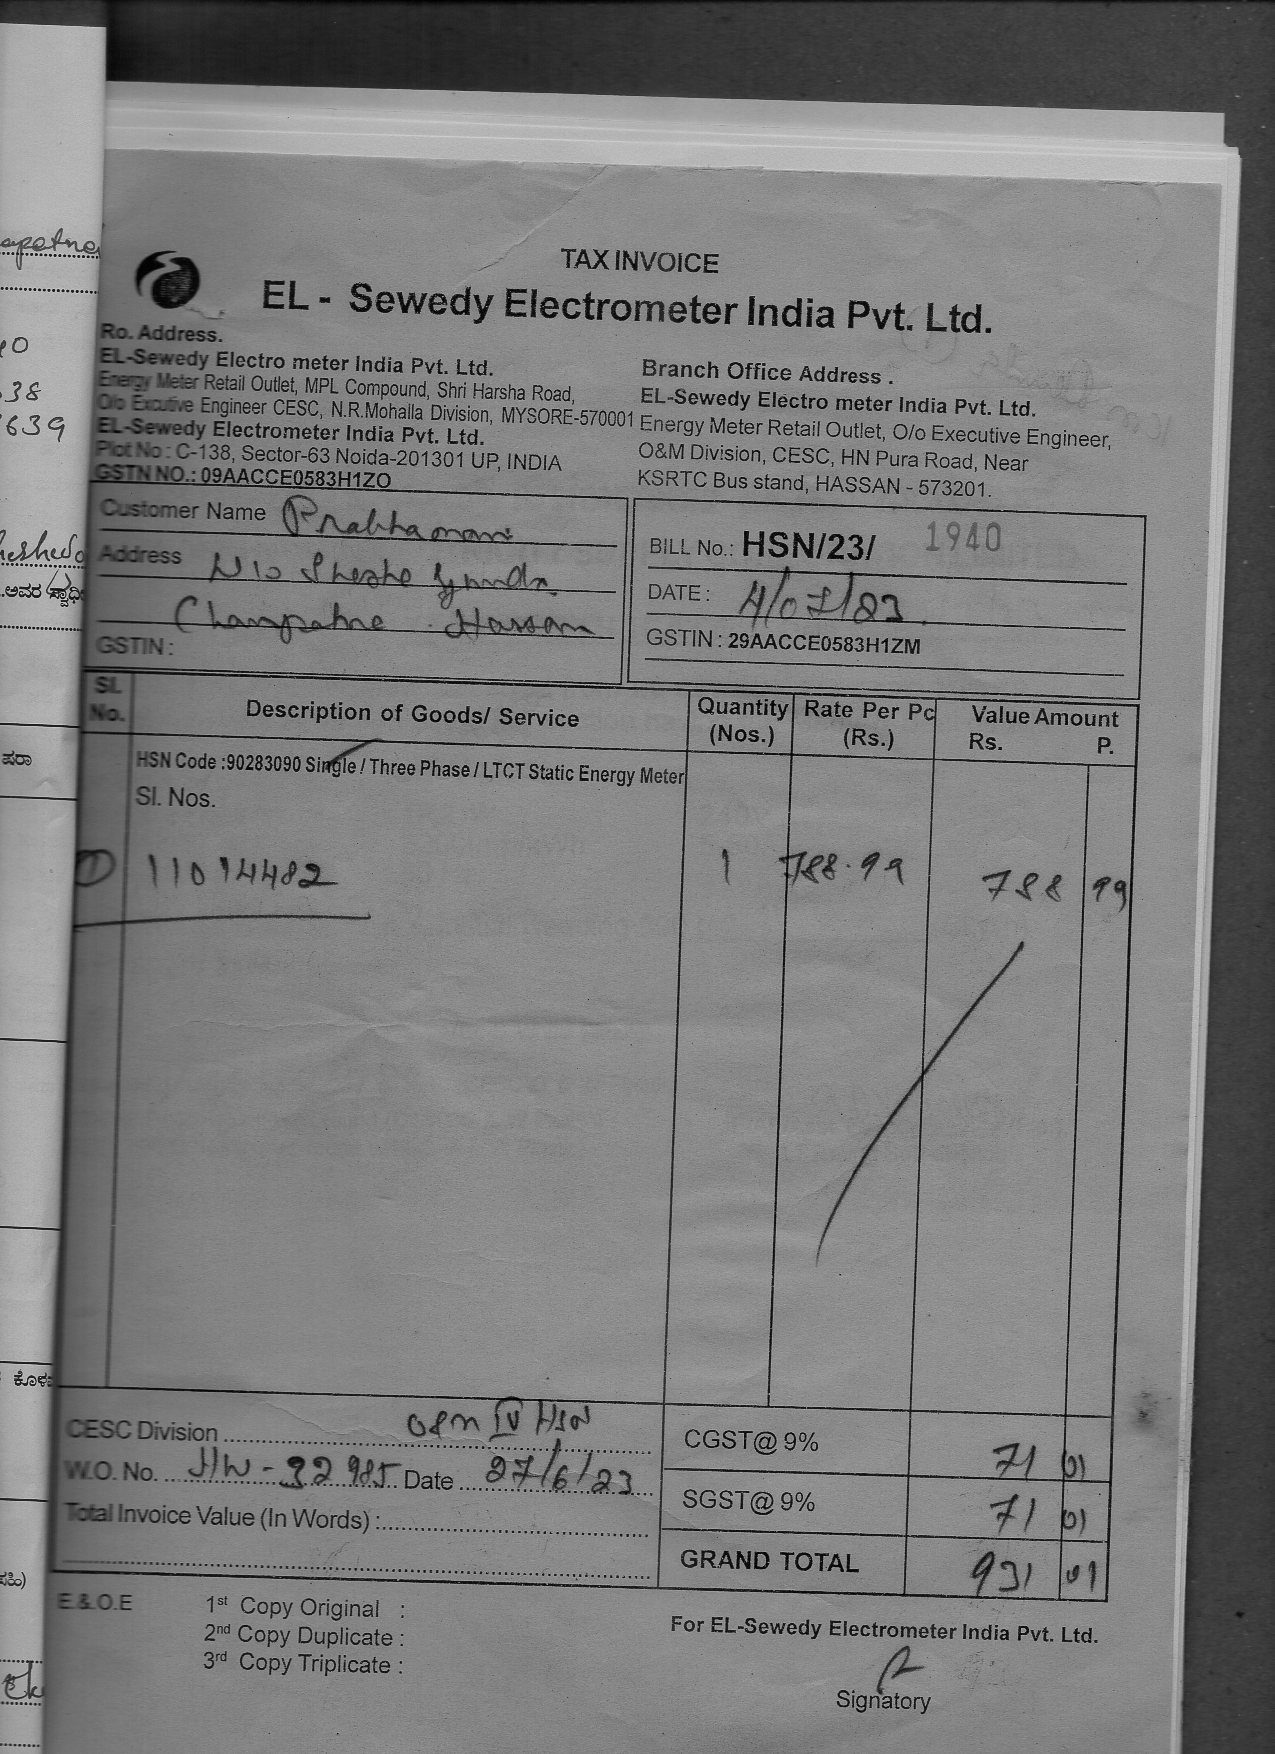 apatna
40
38
639
ಅವರ ಸ್ವಾಧೀ
ಪರಾ
TAX INVOICE
EL - Sewedy Electrometer India Pvt. Ltd.
Ro. Address.
EL-Sewedy Electro meter India Pvt. Ltd.
Energy Meter Retail Outlet, MPL Compound, Shri Harsha Road,
O/o Excutive Engineer CESC, N.R.Mohalla Division, MYSORE-570001
EL-Sewedy Electrometer India Pvt. Ltd.
Plot No : C-138, Sector-63 Noida-201301 UP, INDIA
GSTN NO.: 09AACCE0583H1ZO
Branch Office Address .
EL-Sewedy Electro meter India Pvt. Ltd.
Energy Meter Retail Outlet, O/o Executive Engineer,
O&M Division, CESC, HN Pura Road, Near
KSRTC Bus stand, HASSAN - 573201.
Customer Name Prabhamani
Address W/o Sheshe Gowda
Champatna Hassan
GSTIN :
BILL No.: HSN/23/ 1940
DATE : 4/07/23
GSTIN : 29AACCE0583H1ZM
Sl. No. Description of Goods/ Service Quantity (Nos.) Rate Per Pc (Rs.) Value Amount Rs. P.
HSN Code :90283090 Single / Three Phase / LTCT Static Energy Meter
Sl. Nos.
1 11014482 1 788.99 788 99
CESC Division O&M IV HSN
W.O. No. HW-32985 Date 27/6/23
Total Invoice Value (In Words) :
CGST@ 9% 71 01
SGST@ 9% 71 01
GRAND TOTAL 931 01
E.&.O.E
1st Copy Original :
2nd Copy Duplicate :
3rd Copy Triplicate :
For EL-Sewedy Electrometer India Pvt. Ltd.
Signatory